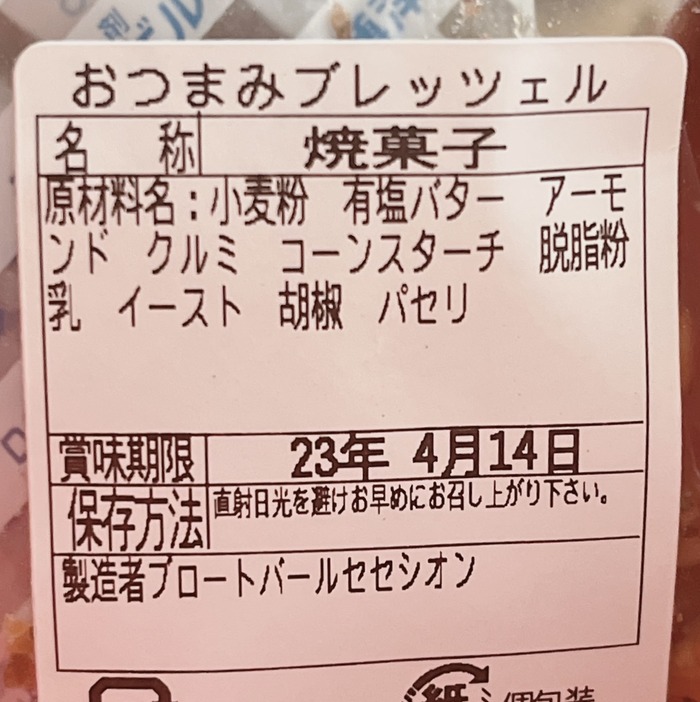 おつまみブレッツェル
名 称 焼菓子
原材料名：小麦粉 有塩バター アーモ
ンド クルミ コーンスターチ 脱脂粉
乳 イースト 胡椒 パセリ
賞味期限 23年 4月14日
保存方法 直射日光を避けお早めにお召し上がり下さい。
製造者ブロートバールセセシオン
紙 個包装